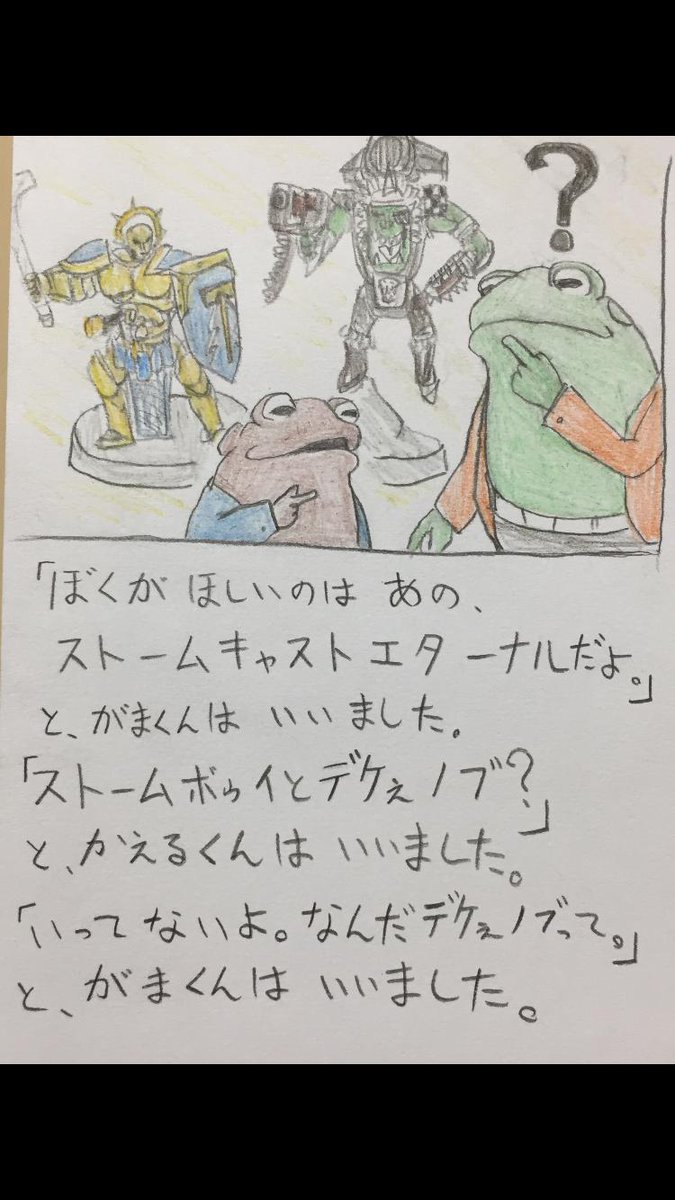 ?
「ぼくが ほしいのは あの、
ストームキャストエターナルだよ。」
と、がまくんは いいました。
「ストームボゥイとデケぇノブ?」
と、かえるくんは いいました。
「いってないよ。なんだデケぇノブって。」
と、がまくんは いいました。